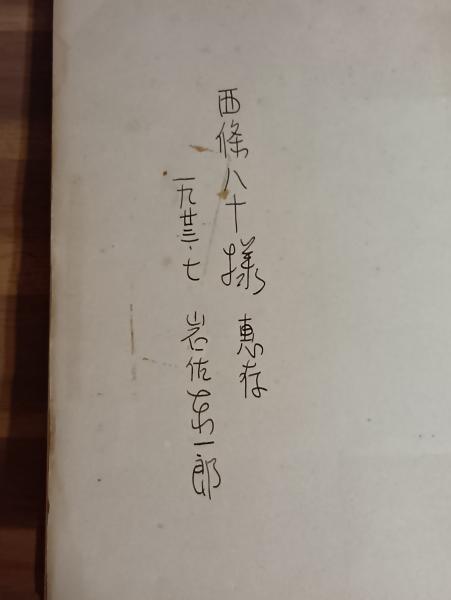 西條八十様 惠存
一九廿三・七 岩佐東一郎